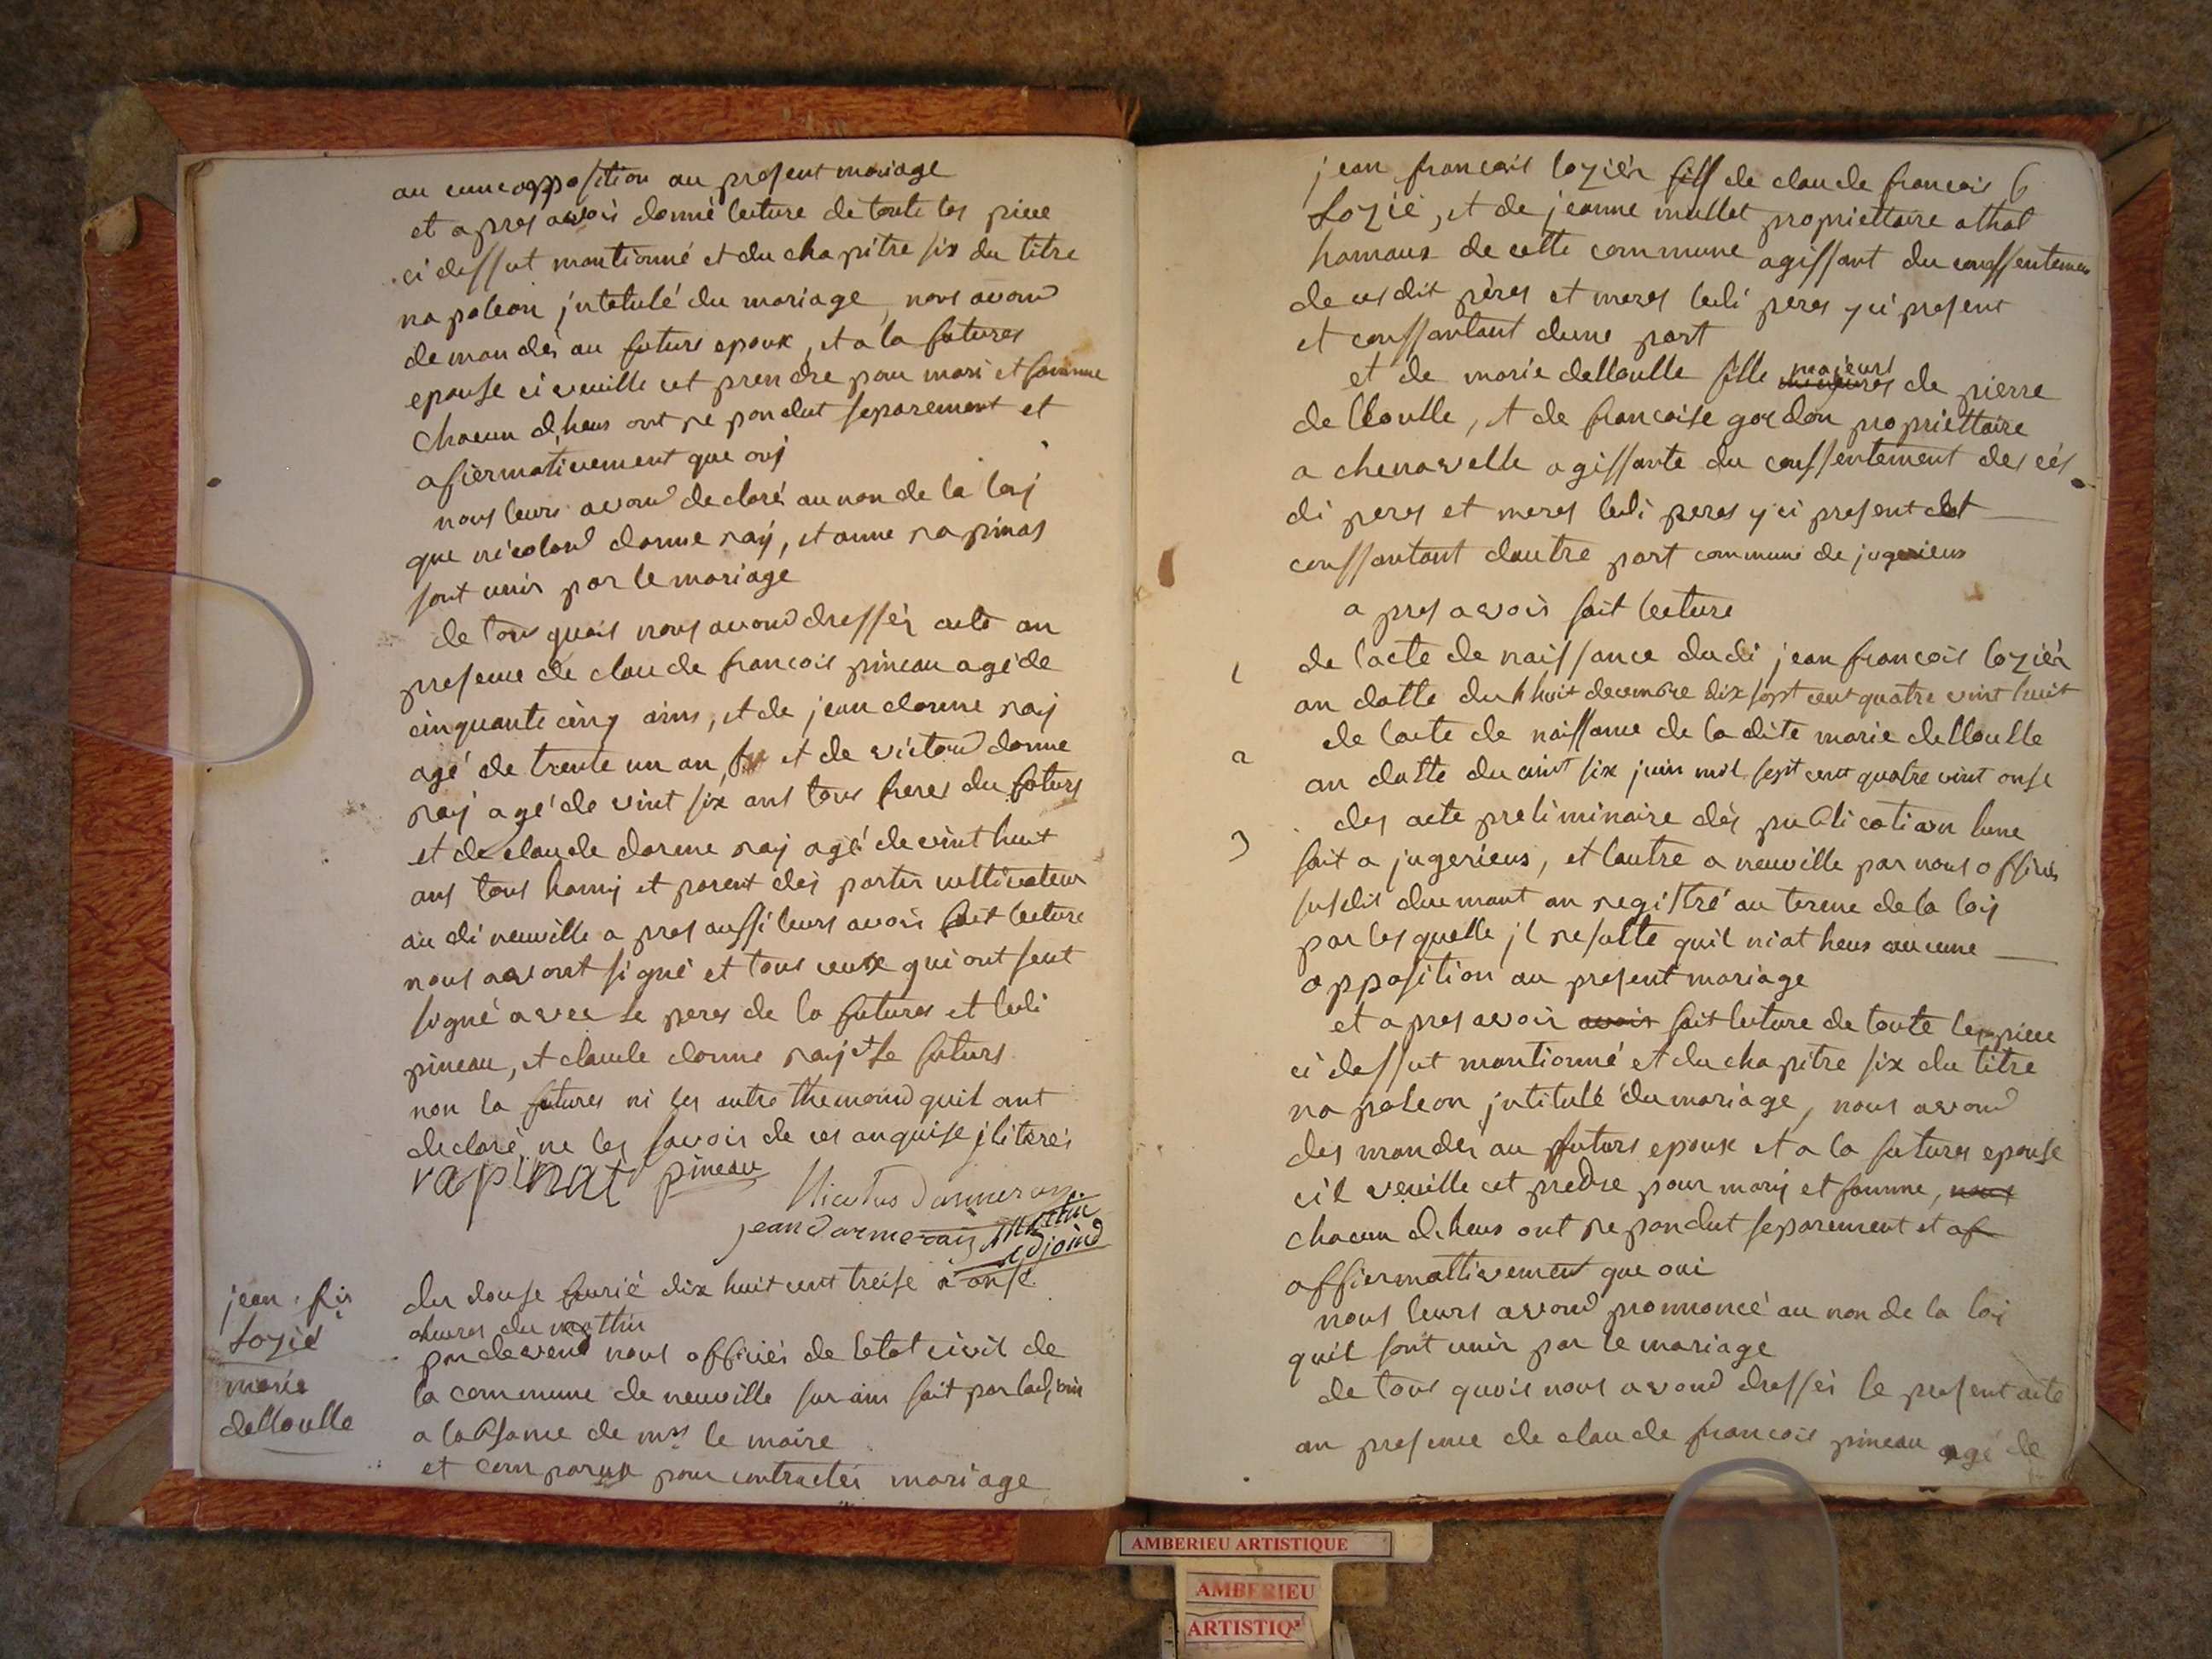 au cune opposition au present mariage
et apres avoir donné lecture de toute les piece
ci dessut mantionné et du chapitre six du titre
napoleon jntatulé du mariage, nous avond
demandés au futurs epoux, et a la futures
epouse ci veuille cet prendre pour mari et famme
chacun dheus ont repondut separement et
afiermativement que ouj
nous leurs avond declaré au non de la loij
que nicolaud darme raij, et anne rapinas
sont unir par le mariage
de tous quois nous avond dressér acte an
presence de claude francois pineau agé de
cinquante cinq ains, et de jean darme raij
agé de trente un an, et de victoud darme
raij agé de vint six ans tous freres du futurs
et de claude darme raij agé de vint huit
ans tous hamij et parent des partis cultivateur
au di neuville a pres aussi leurs avoir fait lecture
nous avont signé et tous ceux qui ont seut
signé avec le peres de la futures et ledi
pineau, et claude darme raij et le futurs
non la futures ni les autre themoind quil ont
declaré ne les savoir de ces anquise jliterés
rapinat pineau
Nicolas darmeray
jean darmeraij
adjoind
jean fis
Lozié
marie
delloulle
du douse fevrié dix huit cent treise a onse
heures du mathin
par devend nous officiér de letat civil de
la commune de neuville sur ain fait par ladjoin
a labsance de mrs le maire
et comparux pour contractér mariage
jean francois loziér fils de claude francois 6
Lozié, et de jeanne mullet propriettaire athol
hamaux de cette commune agissant du conssentemen
de ces dit pères et meres ledi peres yci present
et conssantant dune part
et de marie delloulle fille mineures majeurs de pierre
delloulle, et de francoise gordon propriettaire
a chenavelle agissante du conssentement des cés
di peres et meres ledi peres y ci present et
conssantant dautre part commune de jugerieus
a pres avoir fait lecture
1 de lacte de naissance dudi jean francois loziér
an datte du huit decembre dix sept cent quatre vint huit
2 de lacte de naissance de la dite marie delloulle
an datte du vint six juin mil sept cent quatre vint onse
3 des acte preliminaire dés publication lune
fait a jugerieus, et lautre a neuville par nous officiés
susdit duemant an registré au terme de la loij
par les quelle jl resulte quil niat heus aucune
opposition au present mariage
et apres avoir avoir fait lecture de toute les piece
ci dessut mantionné et du chapitre six du titre
napoleon jntitulé du mariage, nous avond
des mandés au futurs epoux et a la futures epouse
cil veuille cet predre pour marij et famme, nous
chacun dheus ont repondut separement et af
affiermattivement que oui
nous leurs avond pronnoncé au non de la loi
quil sont unir par le mariage
de tous quois nous avond dressér le present acte
an presence de claude francois pineau agé de
AMBERIEU ARTISTIQUE
AMBERIEU
ARTISTIQ